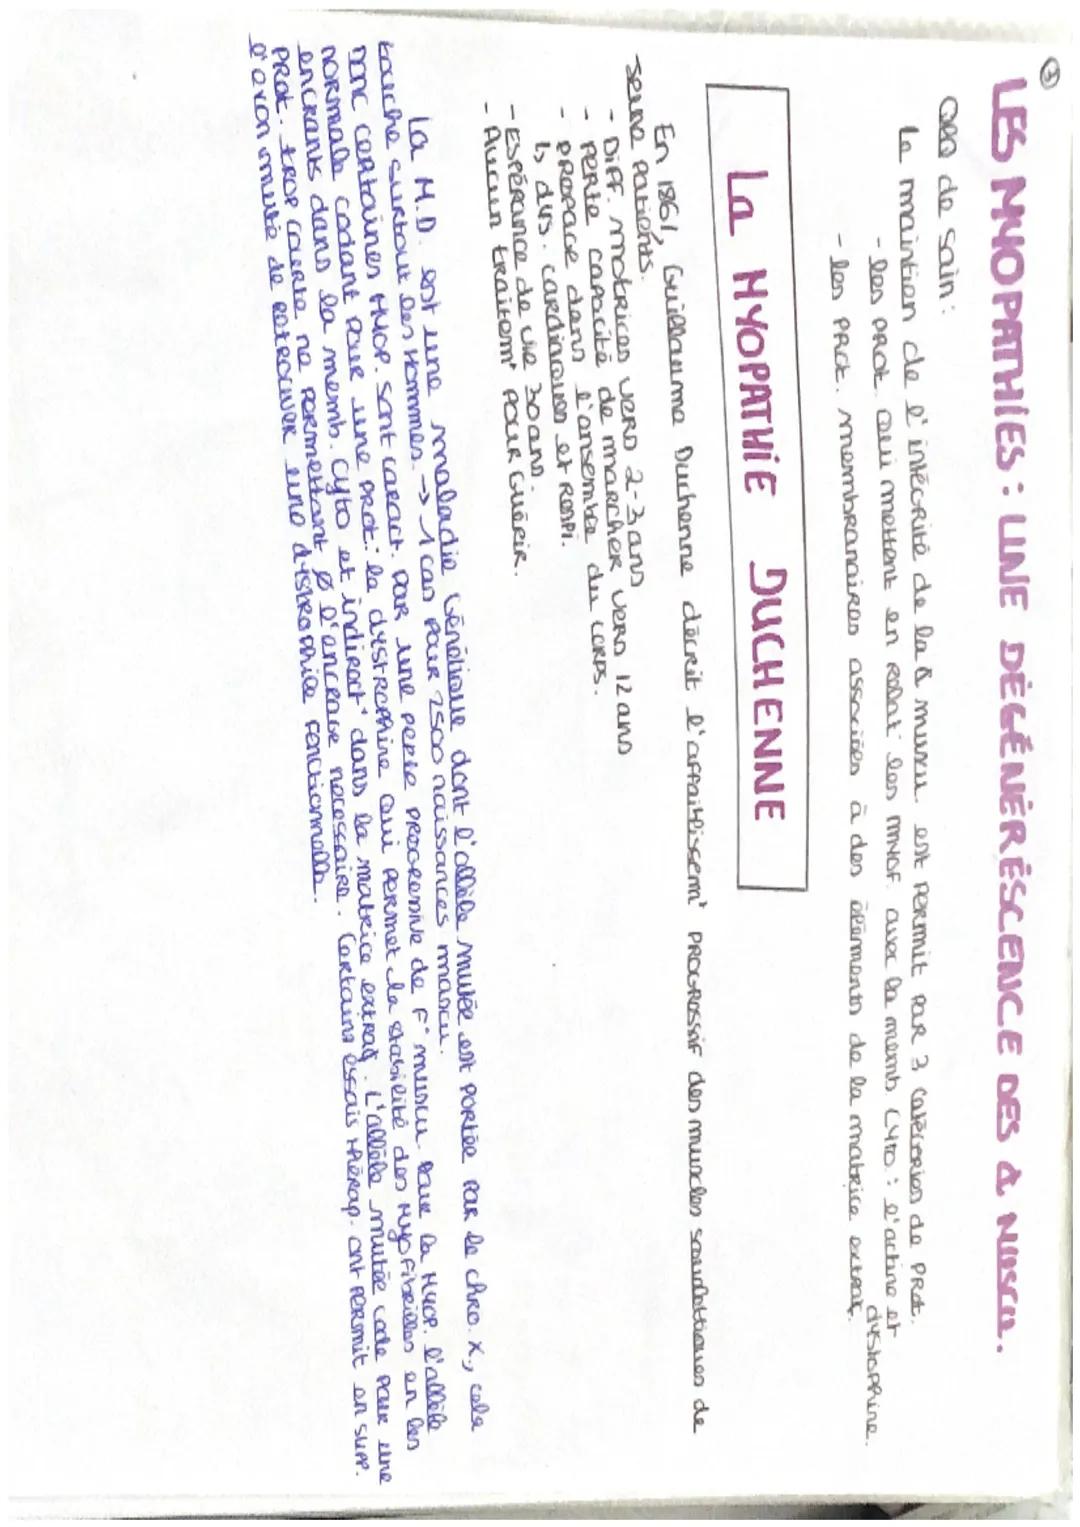 ③
LES MYOPATHIES : UNE DÉGÉNÉRÉSCENCE DES & MUSCU.
de sain :
Le maintien de l'intégrité de la & muscu. est permit par 3 catégories de prot.
- les prot. qui mettent en relat° les myof. avec la memb. cyto : l'actine et dystophine.
- les prot. membranaires associées à des éléments de la matrice extra&.
La MYOPATHIE DUCHENNE
En 1861, Guillaume Duchenne décrit l'affaiblissem^t progressif des muscles squelettiques de
seune patients.
- Diff. motrices vers 2-3 ans
- perte capacité de marcher vers 12 ans
- propage dans l'ensemble du corps.
↳ dys. cardiaques et respi.
- Espérance de vie 30 ans.
- Aucun traitem^t pour guérir.
La M.D. est une maladie génétique dont l'allèle mutée est portée par le chro. X, cela
touche surtout les hommes. → 1 cas pour 2500 naissances mascu.
certaines myop. sont caract. par une perte progressive de f° muscu. Pour la myop. l'allèle
normale codant pour une prot : la dystrophine qui permet la stabilité des myofibrilles en les
encrants dans la memb. cyto et indirect^t dans la matrice extra&. L'allèle mutée code pour une
prot. trop courte ne permettant Ø l'encrage nécessaire. Certains essais thérap. ont permit en supp.
l'exon muté de retrouver une dystrophine fonctionnelle.